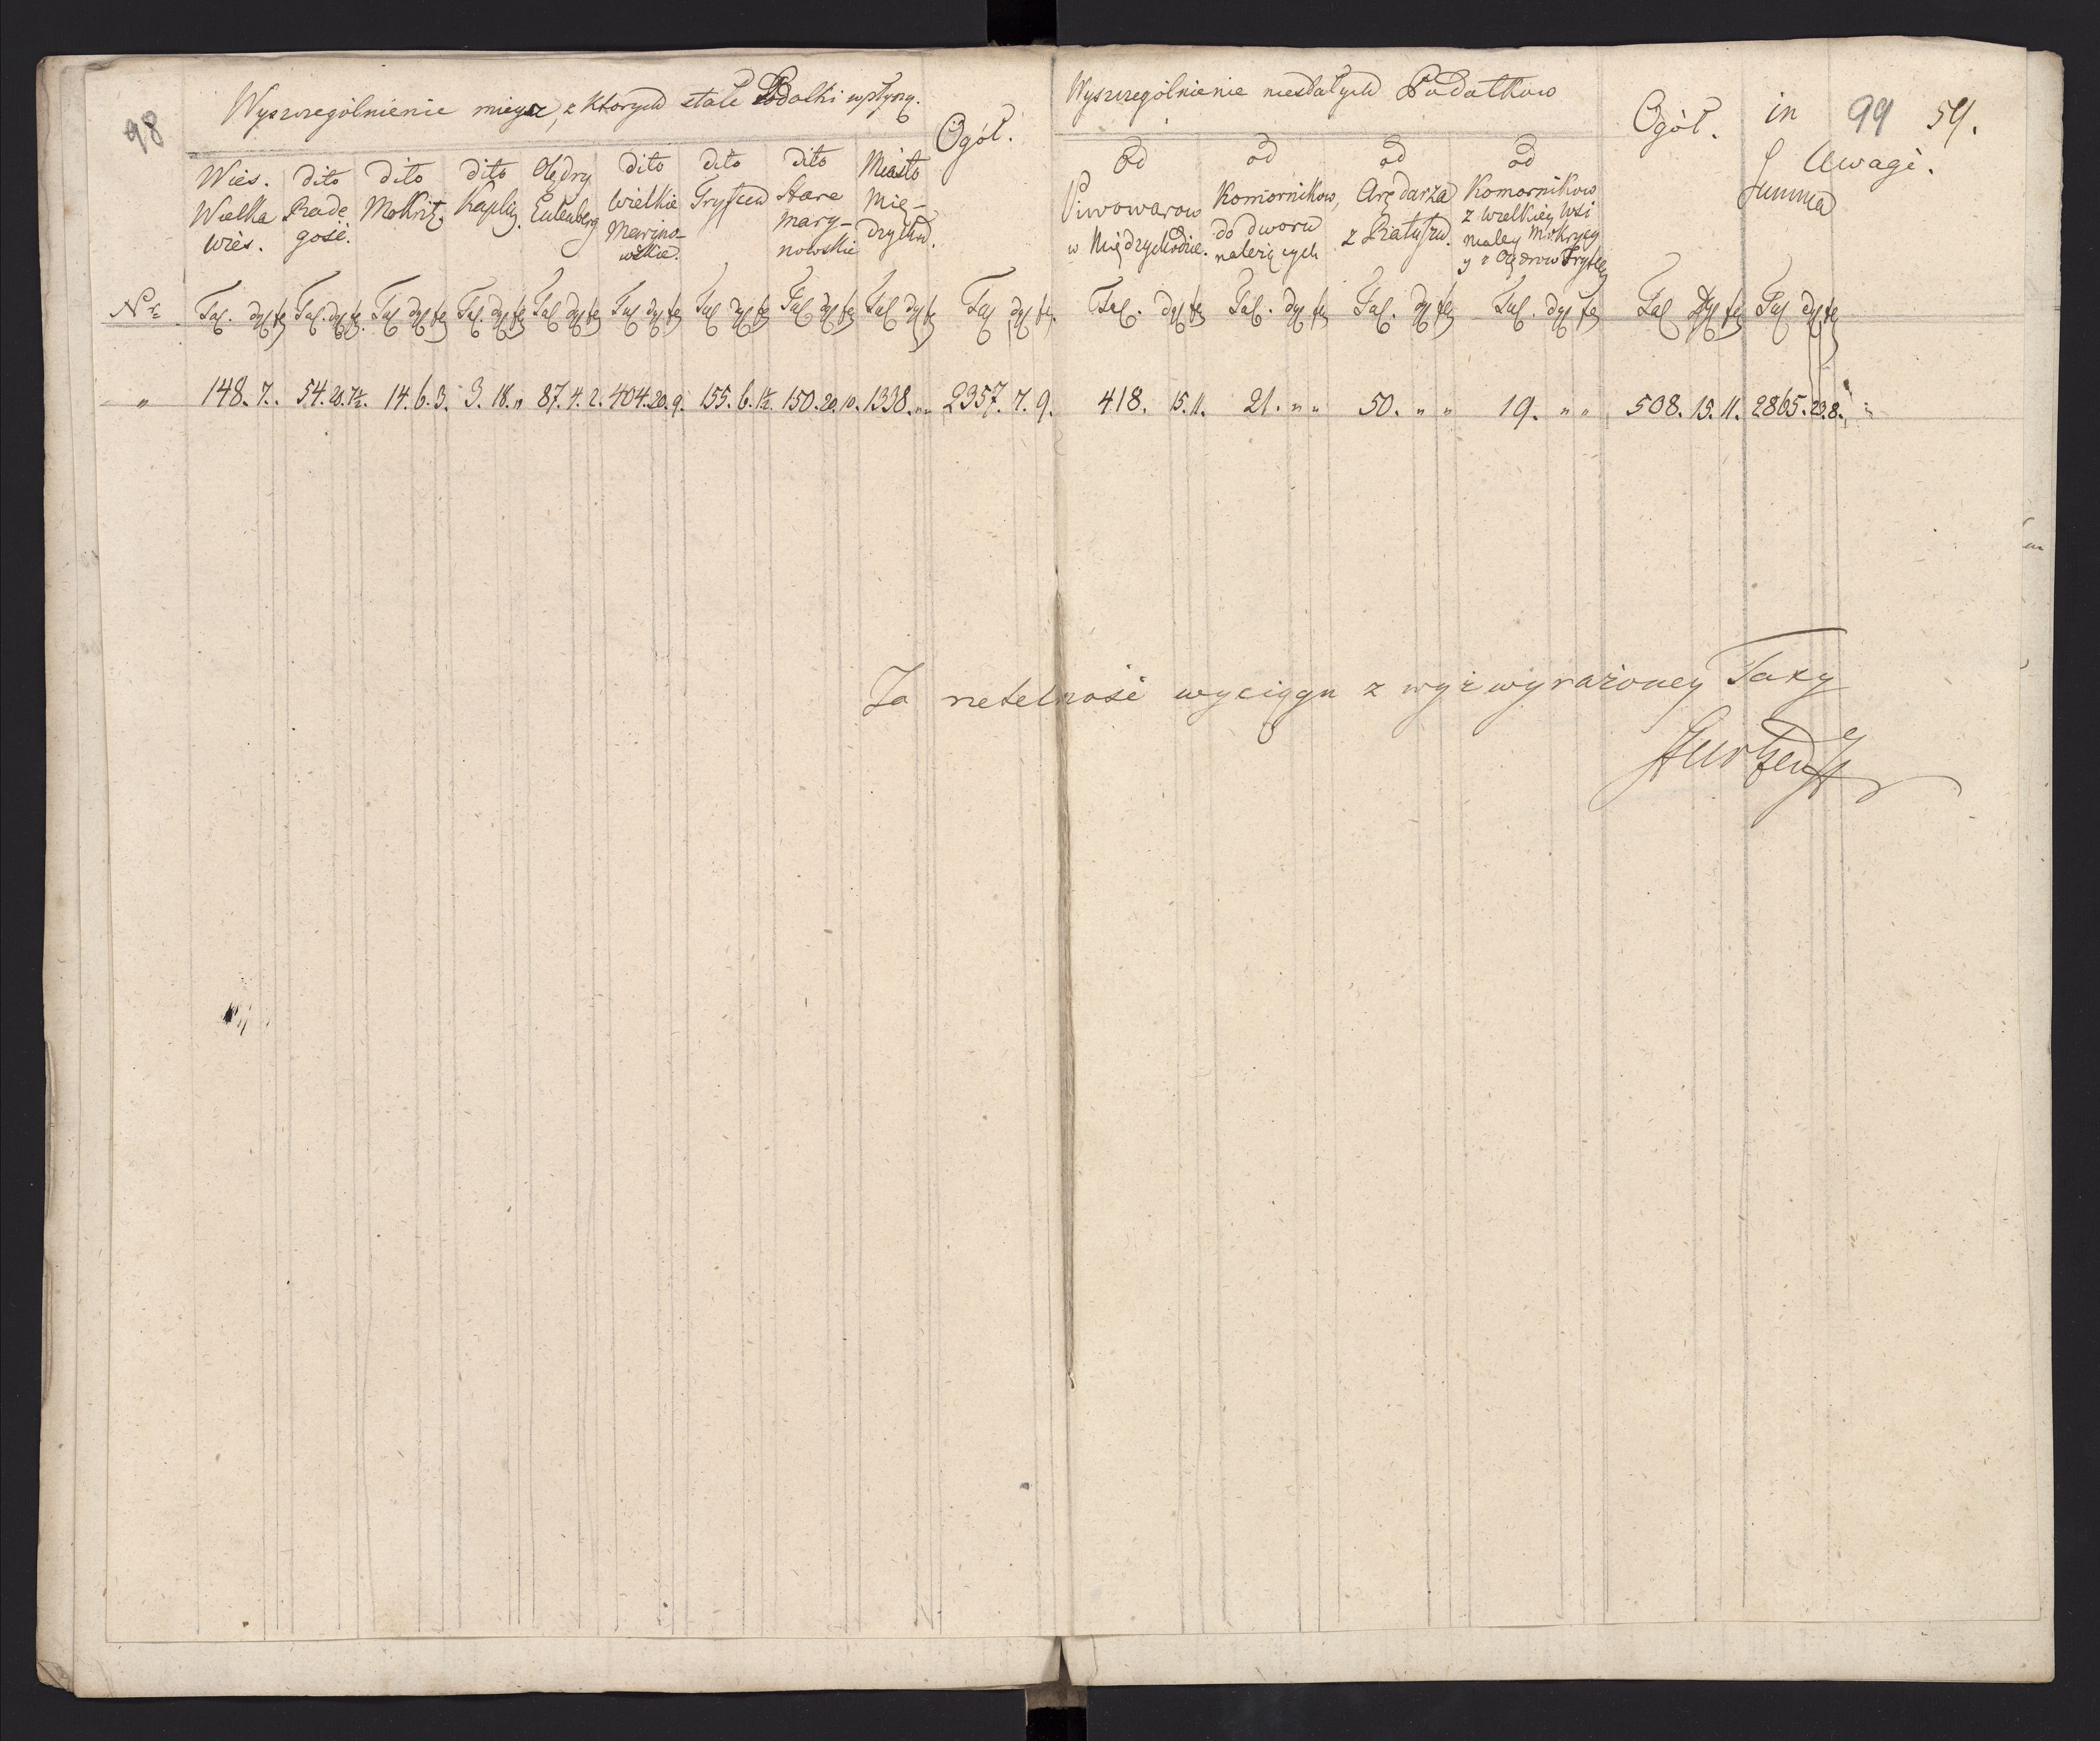 98
Wyszczegolnienie mieysc, z ktorych stałe Podatki wpłyną.
Ogół.
Wieś. Wielka wieś.
dito Rade gość.
dito Mokritz
dito Kaplin
Olędry Eulenberg
dito Wielkie Maryno- wskie.
dito Tryszcu
dito Stare mary- nowskie
Miasto Mię- dzychod.
Nr Tal. dgr fen Tal. dgr fen Tal dgr fen Tal. dgr fen Tal dgr fen Tal dgr fen Tal dgr fen Tal dgr fen Tal dgr fe Tal dgr fe.
" 148. 7. 54. 28. 7½. 14. 6. 3. 3. 18. " 87. 4. 2. 404. 20. 9. 155. 6. 1½. 150. 20. 10. 1338. " " 2357. 7. 9.
Wyszczegolnienie niestałych Podatkow
Ogół.
in
99
54.
Summa
Uwagi.
od Piwowarow w Międzychodzie.
od Komornikow, do dworu należących
od Arędarza z Ratuszu.
od Komornikow z wielkiey Wsi małey Mokrycy y z Olędrow
Tal. dgr fen Tal. dgr fen Tal. dgr fen Tal. dgr fen Tal dgr fen Tal dgr fen
418. 15. 11. 21. " " 50. " " 19. " " 508. 15. 11. 2865. 23. 8.
Za rzetelność wyciągu z wyż wyrażoney Taxy